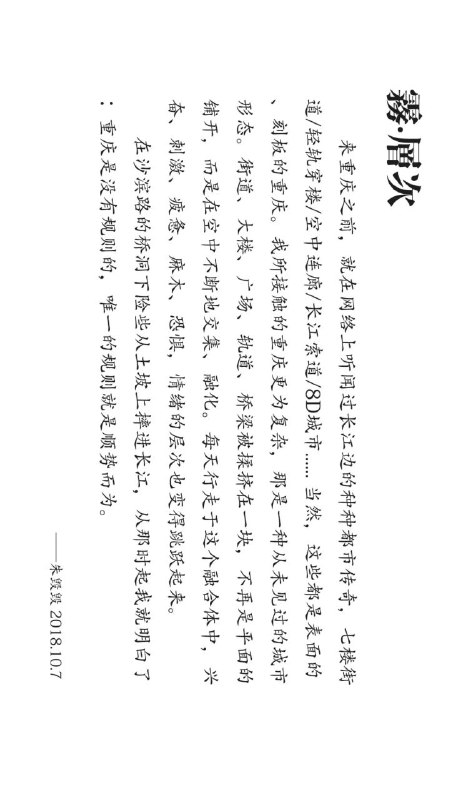 霧·層次
来重庆之前，就在网络上听闻过长江边的种种都市传奇，七楼街
道/轻轨穿楼/空中连廊/长江索道/8D城市……当然，这些都是表面的
、刻板的重庆。我所接触的重庆更为复杂，那是一种从未见过的城市
形态。街道、大楼、广场、轨道、桥梁被揉挤在一块，不再是平面的
铺开，而是在空中不断地交集、融化。每天行走于这个融合体中，兴
奋、刺激、疲惫、麻木、恐惧，情绪的层次也变得跳跃起来。
在沙滨路的桥洞下险些从土坡上摔进长江，从那时起我就明白了
：重庆是没有规则的，唯一的规则就是顺势而为。
——朱毁毁 2018.10.7